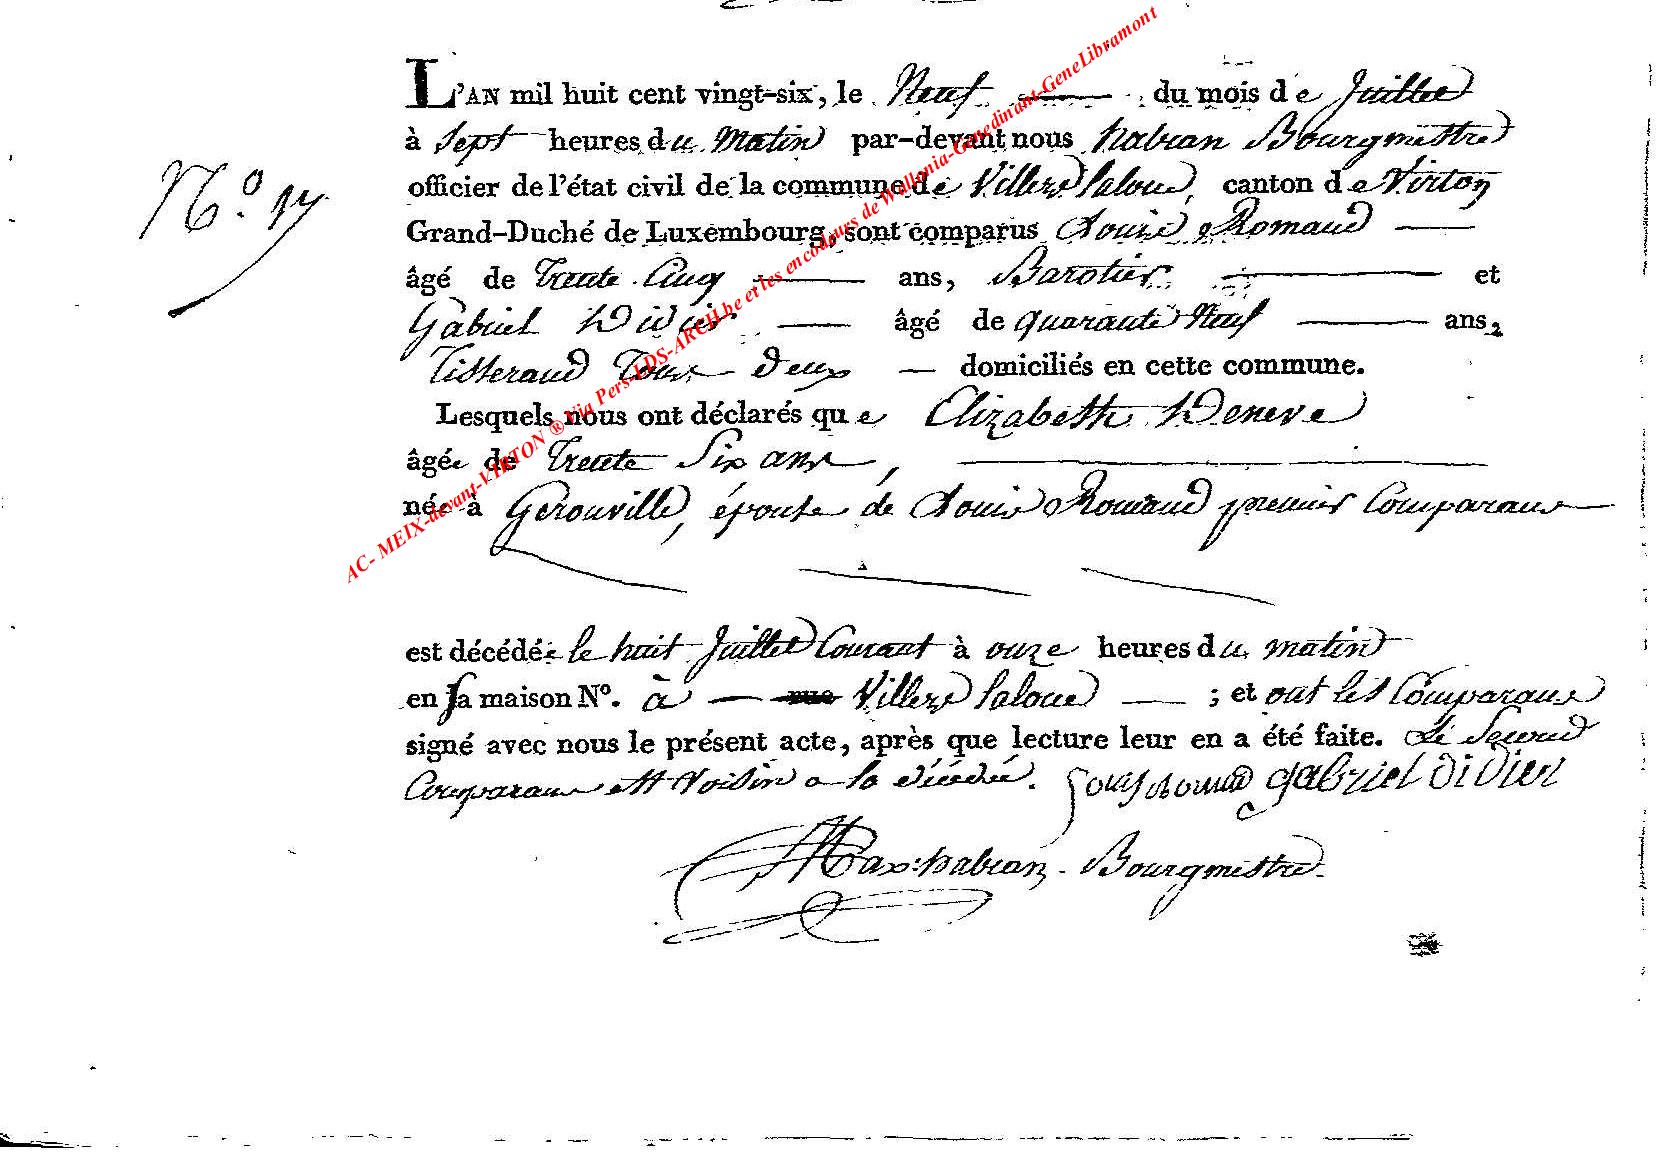 L'AN mil huit cent vingt-six, le Neuf du mois de Juillet
à Sept heures du Matin par-devant nous habran Bourgmestre
N.º 17
officier de l'état civil de la commune de Villers laloue, canton de Virton
Grand-Duché de Luxembourg, sont comparus Louis Romand
âgé de Trente Cinq ans, Barotier et
Gabriel Didier âgé de quarante Neuf ans,
Tisserand Tous deux domiciliés en cette commune.
Lesquels nous ont déclarés que Elizabeth Deneve
âgée de Trente Six ans,
née à Gerouville, épouse de Louis Romand premier Comparant
est décédée le huit Juillet Courant à onze heures du matin
en sa maison Nº. à rue Villers laloue ; et ont les Comparans
signé avec nous le présent acte, après que lecture leur en a été faite. Le Second
Comparant est Voisin a la décédée. Louis Romand gabriel didier
Max: habran Bourgmestre
AC- MEIX-devant-VIRTON ® Via Pers-LDS-ARCH.be et les encodeurs de Wallonia-Genedinant-GeneLibramont